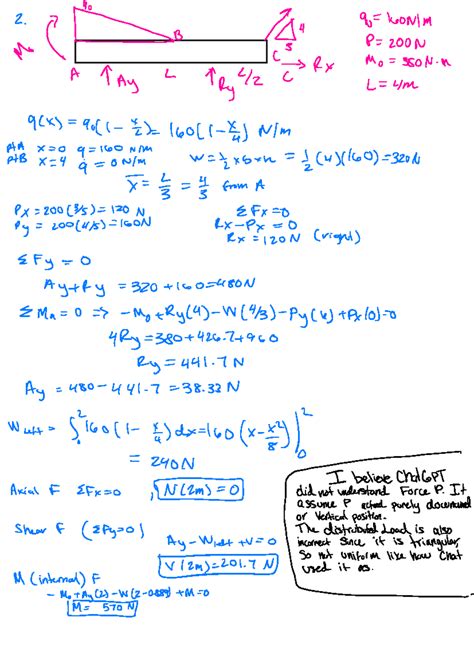 2.
q₀
q₀ = 160 N/m
P = 200 N
M₀ = 350 N·m
L = 4 m
M₀
B
4
3
C
Rx
C
A
Ay
L
Ry
L/2
q(x) = q₀(1 - x/2) = 160(1 - x/4) N/m
P+A x=0 q=160 N/m
P+B x=4 q=0 N/m
W = 1/2 × b × h = 1/2 (4)(160) = 320N
x̄ = L/3 = 4/3 from A
Px = 200(3/5) = 120 N
Py = 200(4/5) = 160N
ΣFx=0
Rx - Px = 0
Rx = 120N (right)
ΣFy = 0
Ay+Ry = 320 + 160 = 480N
ΣMa = 0 => -M₀ + Ry(4) - W(4/3) - Py(6) + Px(0) = 0
4Ry = 380 + 426.7 + 960
Ry = 441.7 N
Ay = 480 - 441.7 = 38.32 N
W left = ∫₀² 160(1 - x/4) dx = 160(x - x²/8)|₀²
= 240N
Axial F ΣFx=0, N(2m) = 0
Shear F (ΣFy=0)
Ay - Wleft + V = 0
V(2m) = 201.7 N
M (internal) F
-M₀ + Ay(2) - W(2-0.889) + M = 0
M = 570 N
I believe ChatGPT
did not understand Force P. It
assume P acted purely downward
or vertical position.
The distributed Load is also
incorrect since it is triangular,
So not uniform like how Chat
used it as.